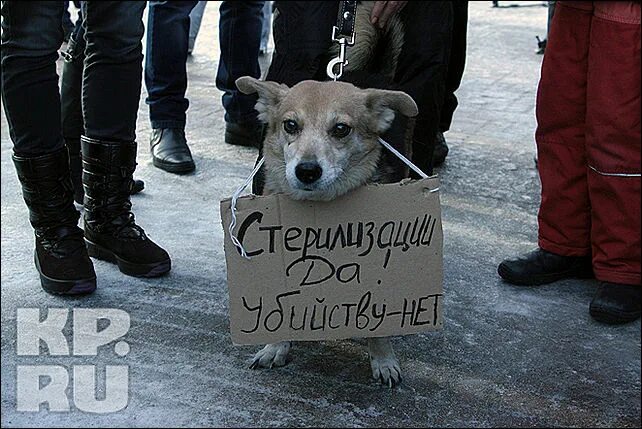 Стерилизации
Да!
Убийству-НЕТ
KP.
RU